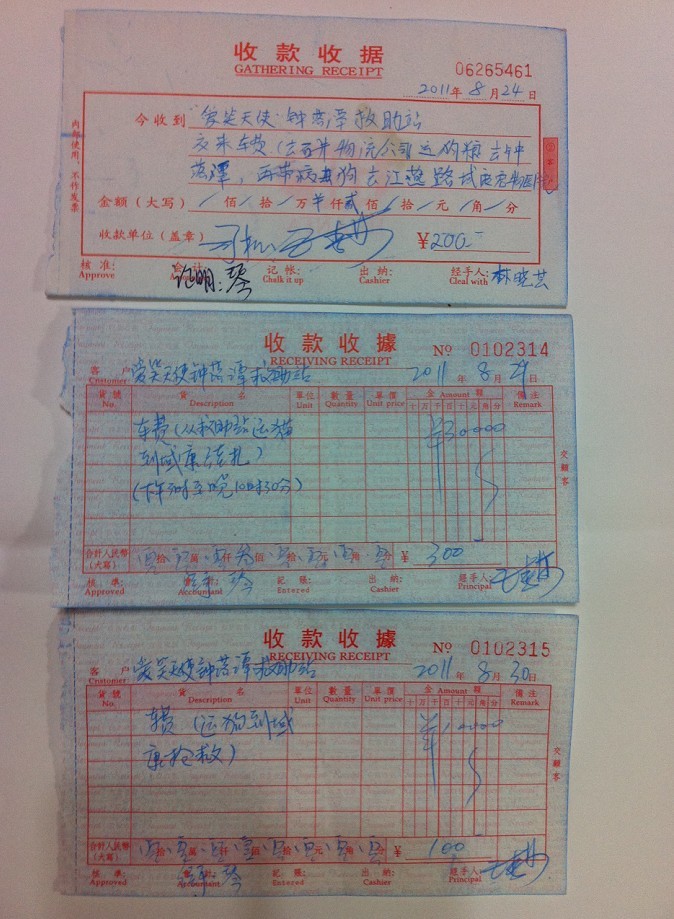 收款收据
GATHERING RECEIPT
06265461
2011年8月24日
今收到 爱笑天使·钟落潭救助站
交来车费(去百井物流公司运狗粮去钟
落潭,再带病狗去江燕路
金额(大写) / 佰 / 拾 / 万 / 仟 贰 佰 / 拾 / 元 / 角 / 分
收款单位(盖章) 司机 ¥200-
内部使用,不作发票
核准: 会计 记帐: 出纳: 经手人: 林晓芸
Approve Chalk it up Cashier Cleal with
证明:琴
收款收據
RECEIVING RECEIPT
№ 0102314
客户 爱笑天使钟落潭救助站 2011年8月29日
Customer:
貨號 貨名 單位 數量 單價 金 Amount 額 備註
No. Description Unit Quantity Unit price 十万千百十元角分 Remark
车费(从救助站运猫 ¥30000
到域康结扎)
(下午 时至晚10时30分)
交顧客
合計人民幣 拾 萬 仟 叁 佰 拾 元 角 分 ¥ 300
(大寫)
核準: 會計: 琴 記賬: 出納: 經手人:
Approved Accountant Entered Cashier Principal
收款收據
RECEIVING RECEIPT
№ 0102315
客户 爱笑天使钟落潭救助站 2011年8月30日
Customer:
貨號 貨名 單位 數量 單價 金 Amount 額 備註
No. Description Unit Quantity Unit price 十万千百十元角分 Remark
车费(运狗到域 ¥10000
康抢救)
交顧客
合計人民幣 拾 萬 仟 壹 佰 拾 元 角 分 ¥ 100
(大寫)
核準: 會計: 琴 記賬: 出納: 經手人:
Approved Accountant Entered Cashier Principal